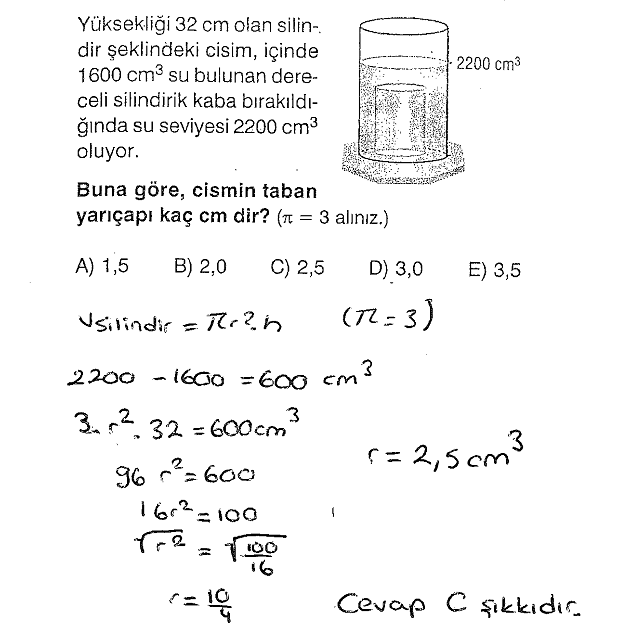 Yüksekliği 32 cm olan silin-
dir şeklindeki cisim, içinde
1600 cm³ su bulunan dere-
celi silindirik kaba bırakıldı-
ğında su seviyesi 2200 cm³
oluyor.
2200 cm³
Buna göre, cismin taban
yarıçapı kaç cm dir? (π = 3 alınız.)
A) 1,5 B) 2,0 C) 2,5 D) 3,0 E) 3,5
Vsilindir = πr².h (π = 3)
2200 - 1600 = 600 cm³
3. r². 32 = 600cm³
96 r² = 600
16r² = 100
√r² = √100/16
r = 10/4
r = 2,5 cm³
Cevap C şıkkıdır.